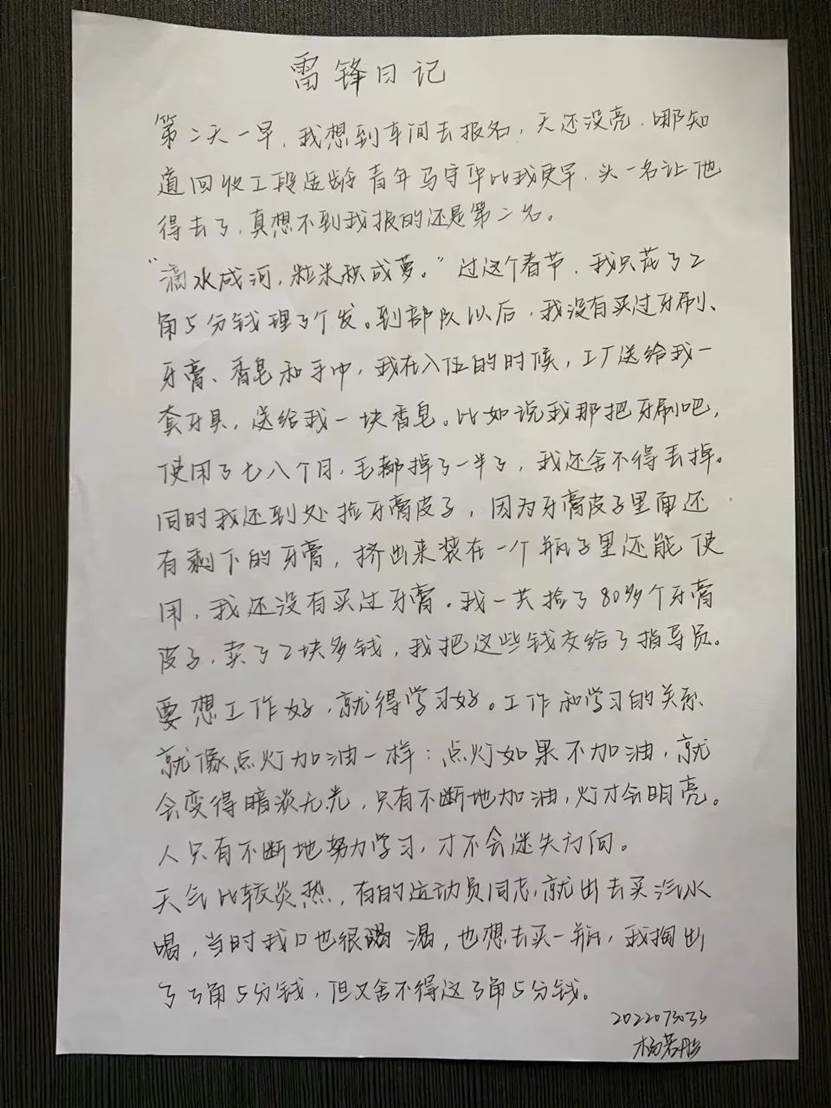 雷锋日记
第二天一早，我想到车间去报名，天还没亮，哪知
道回收工段适龄青年马守华比我更早，头一名让他
得去了，真想不到我报的还是第二名。
“滴水成河，粒米积成萝。”过这个春节，我只花了2
角5分钱理了个发。到部队以后，我没有买过牙刷、
牙膏、香皂和手巾，我在入伍的时候，工厂送给我一
套牙具，送给我一块香皂。比如说我那把牙刷吧，
使用了七八个月，毛都掉了一半了，我还舍不得丢掉。
同时我还到处捡牙膏皮子，因为牙膏皮子里面还
有剩下的牙膏，挤出来装在一个瓶子里还能使
用，我还没有买过牙膏。我一共捡了80多个牙膏
皮子，卖了2块多钱，我把这些钱交给了指导员。
要想工作好，就得学习好。工作和学习的关系
就像点灯加油一样：点灯如果不加油，就
会变得暗淡无光，只有不断地加油，灯才会明亮。
人只有不断地努力学习，才不会迷失方向。
天气比较炎热，有的运动员同志，就出去买汽水
喝，当时我口也很渴，也想去买一瓶，我掏出
了3角5分钱，但又舍不得这3角5分钱。
2022073033
杨若彤